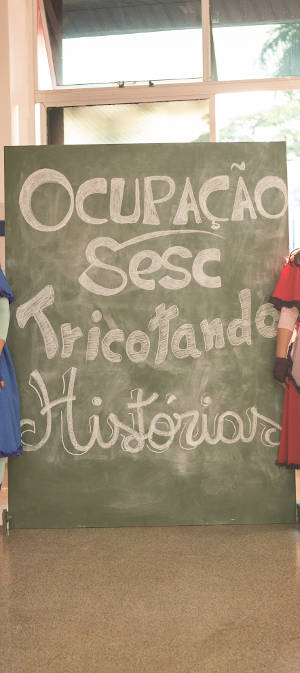 OCUPAÇÃO
Sesc
Tricotando
Histórias